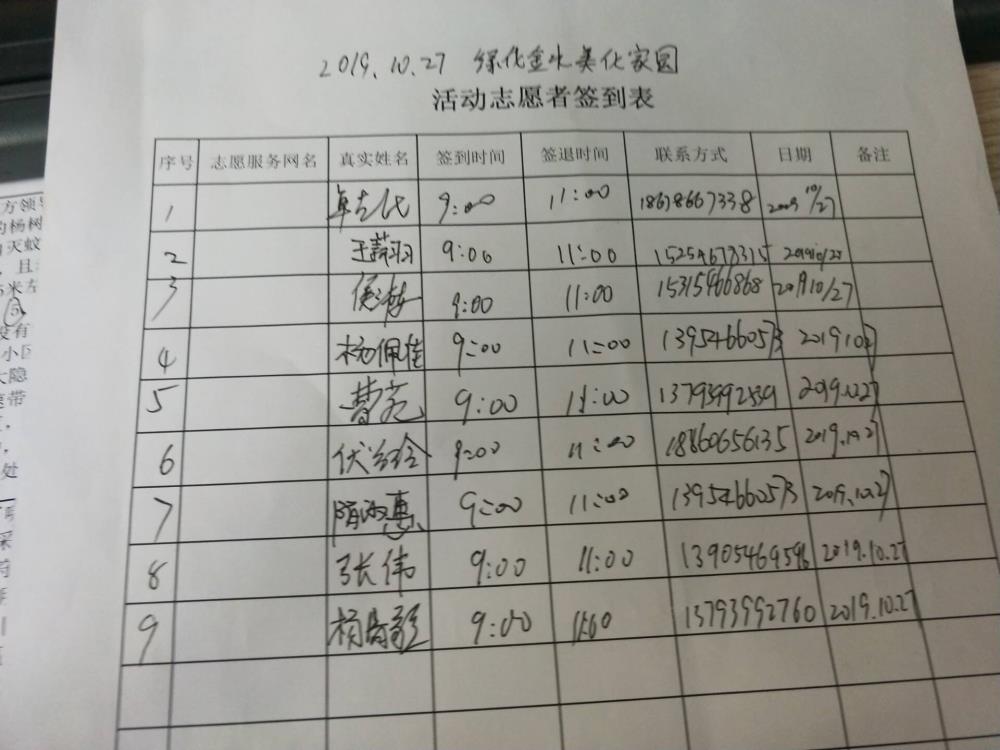 2019.10.27 绿化金水美化家园
活动志愿者签到表
序号 志愿服务网名 真实姓名 签到时间 签退时间 联系方式 日期 备注
1 9:00 11:00 18678667338 10/27
2 9:00 11:00 15254678315
3 9:00 11:00 15315466868 2019 10/27
4 杨佩佳 9:00 11:00 13954660573 2019.10.27
5 曹苑 9:00 11:00 13793992539 2019.10.27
6 9:00 11:00 18860656135 2019.10.27
7 9:00 11:00 13954660573 2019.10.27
8 张伟 9:00 11:00 13905469596 2019.10.27
9 9:00 11:00 13793992760 2019.10.27
方领导
的杨树
灭蚁
，且
米左
⑤
没有
小区
大隐
带
处
采